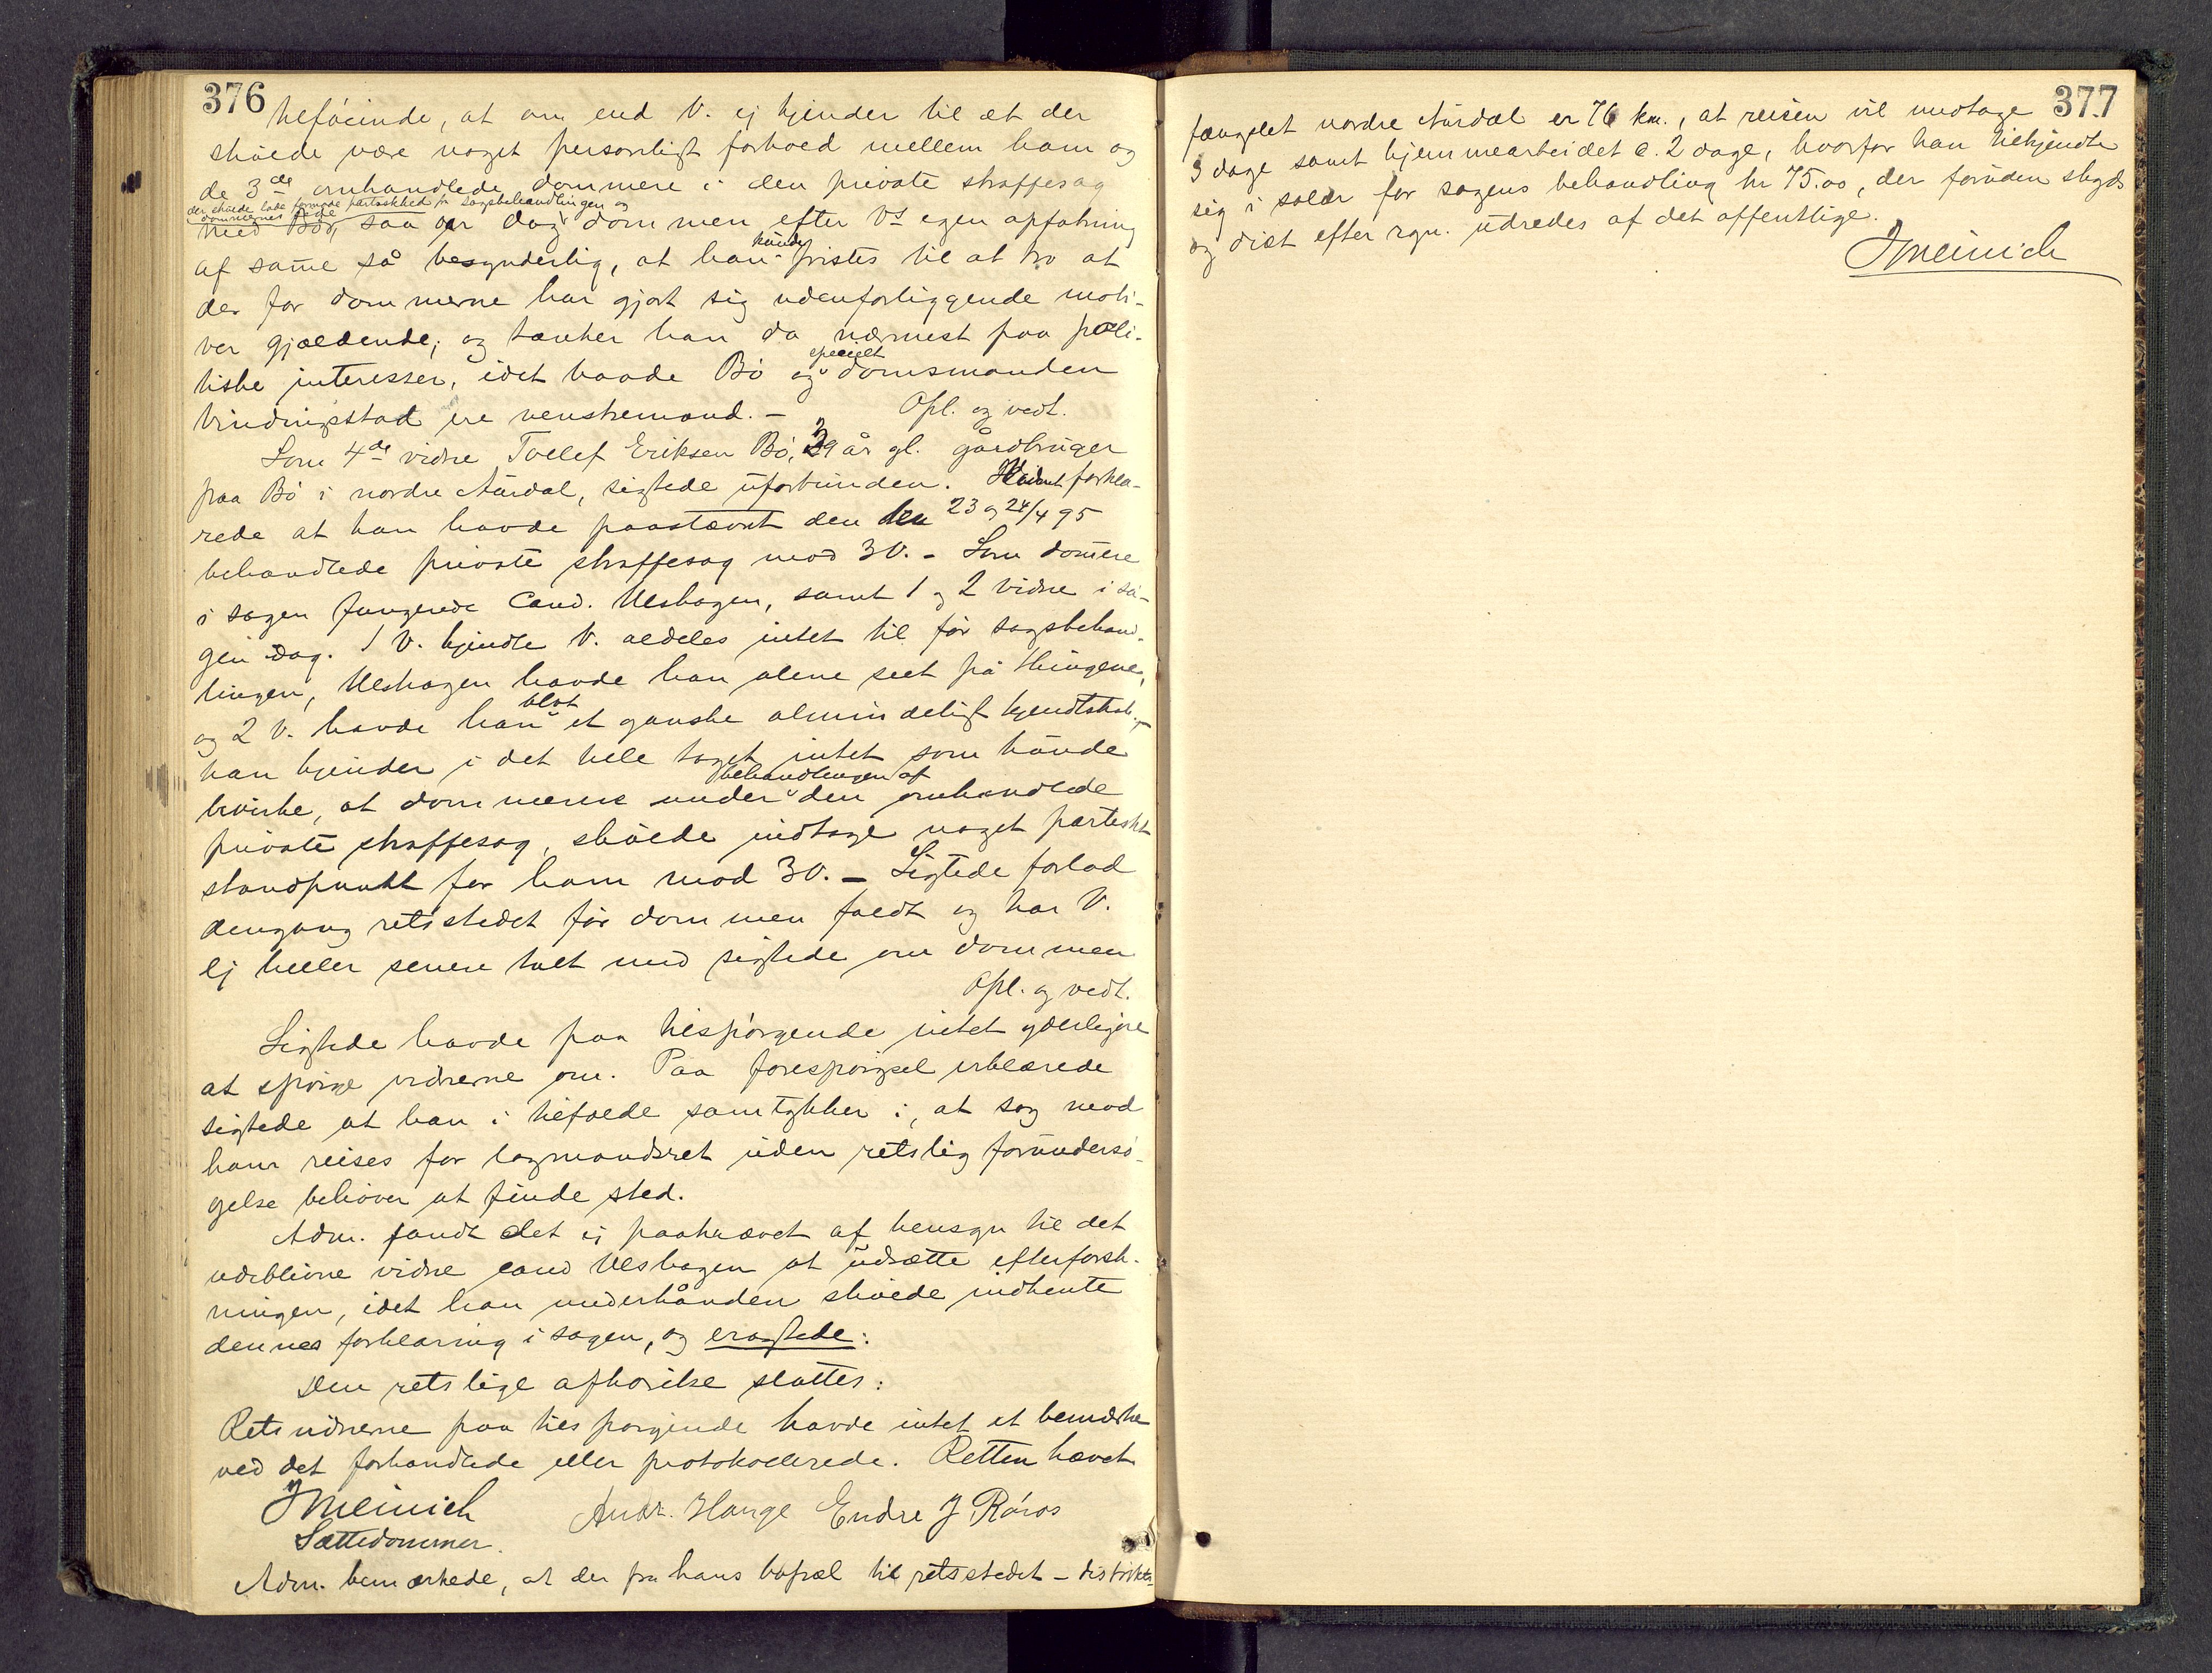 376
tilføiende, at om end V. ej kjender til at der
skulde være noget personligt forhold mellem ham og
de 3de omhandlede dommere i den private straffesag
der skulde lade formode partiskhed fra sagsbehandlingen og
dommernes side
med Bø, saa er dog dommen efter Vs egen opfatning
af samme så besynderlig, at han kunde fristes til at tro at
der for dommerne har gjort sig udenforliggende moti-
ver gjældende; og tænker han da nærmest paa poli-
tiske interesser, idet baade Bø og specielt domsmanden
Vindingstad ere venstremænd. - Opl. og vedt.
Som 4de vidne Tollef Eriksen Bø, 39 år gl. gårdbruger
paa Bø i nordre Aurdal, sigtede uforbunden. Vidnet forkla-
rede at han havde paastævnt den den 23 og 24/4 95
behandlede private straffesag mod 3V. - Som domere
i sagen fungerede Cand. Ulshagen, samt 1 og 2 vidne i sa-
gen idag. 1 V. kjendte V. aldeles intet til før sagsbehand-
lingen, Ulshagen havde han alene seet på thingene,
og 2 V. havde han blot et ganske almindeligt kjendtskab,-
han kjender i det hele taget intet som kunde
bevirke, at dommerne under behandlingen af den omhandlede
private straffesag, skulde indtage noget partiskt
standpunkt for ham mod 3V. - Sigtede forlod
dengang retsstedet før dommen faldt og har V.
ej heller senere talt med sigtede om dommen
Opl. og vedt.
Sigtede havde paa tilspørgende intet yderligere
at spørge vidnerne om. Paa forespørgsel erklærede
sigtede at han i tilfælde samtykker i, at sag mod
ham reises for lagmandsret uden retslig forundersø-
gelse behøver at finde sted.
Adm. fandt det ej paakrævet af hensyn til det
udeblivne vidne cand Ulshagen at udsætte efterforsk-
ningen, idet han underhånden skulde indhente
dennes forklaring i sagen, og eragtede:
Den retslige afhørelse sluttes:
Retsvidnerne paa tilspørgende havde intet at bemærke
ved det forhandlede eller protokollerede. Retten hævet
J Meinich Andr. Hange Endre J Røros
Sættedommer.
Adm. bemærkede, at der fra hans bopæl til retsstedet - distrikts-
377
fængslet nordre Aurdal er 76 km., at reisen vil medtage
3 dage samt hjemmearbeidet c. 2 dage, hvorfor han tilkjendte
sig i salær for sagens behandling kr 75.00, der foruden skyds
og diæt efter rgn. udredes af det offentlige.
J Meinich